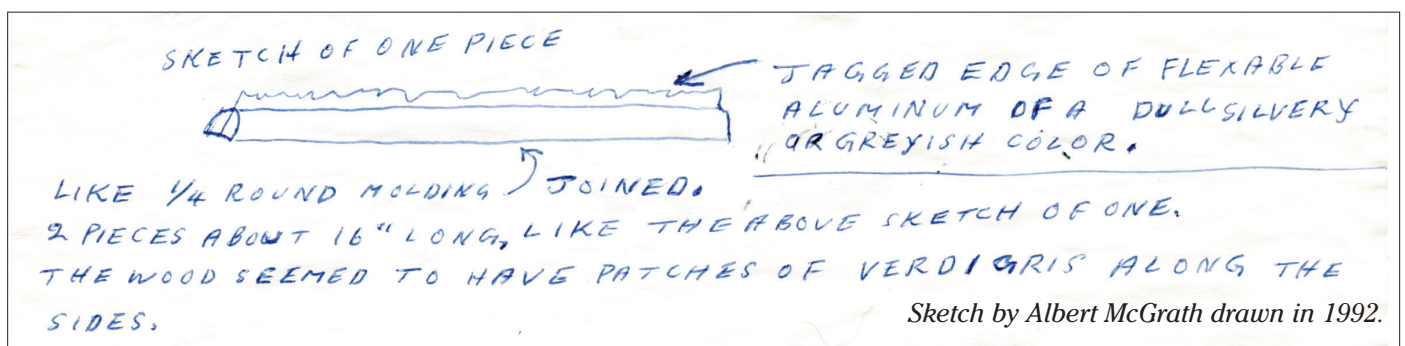 SKETCH OF ONE PIECE
JAGGED EDGE OF FLEXABLE
ALUMINUM OF A DULL SILVERY
OR GREYISH COLOR.
LIKE 1/4 ROUND MOLDING JOINED.
2 PIECES ABOUT 16" LONG, LIKE THE ABOVE SKETCH OF ONE.
THE WOOD SEEMED TO HAVE PATCHES OF VERDIGRIS ALONG THE
SIDES.
Sketch by Albert McGrath drawn in 1992.